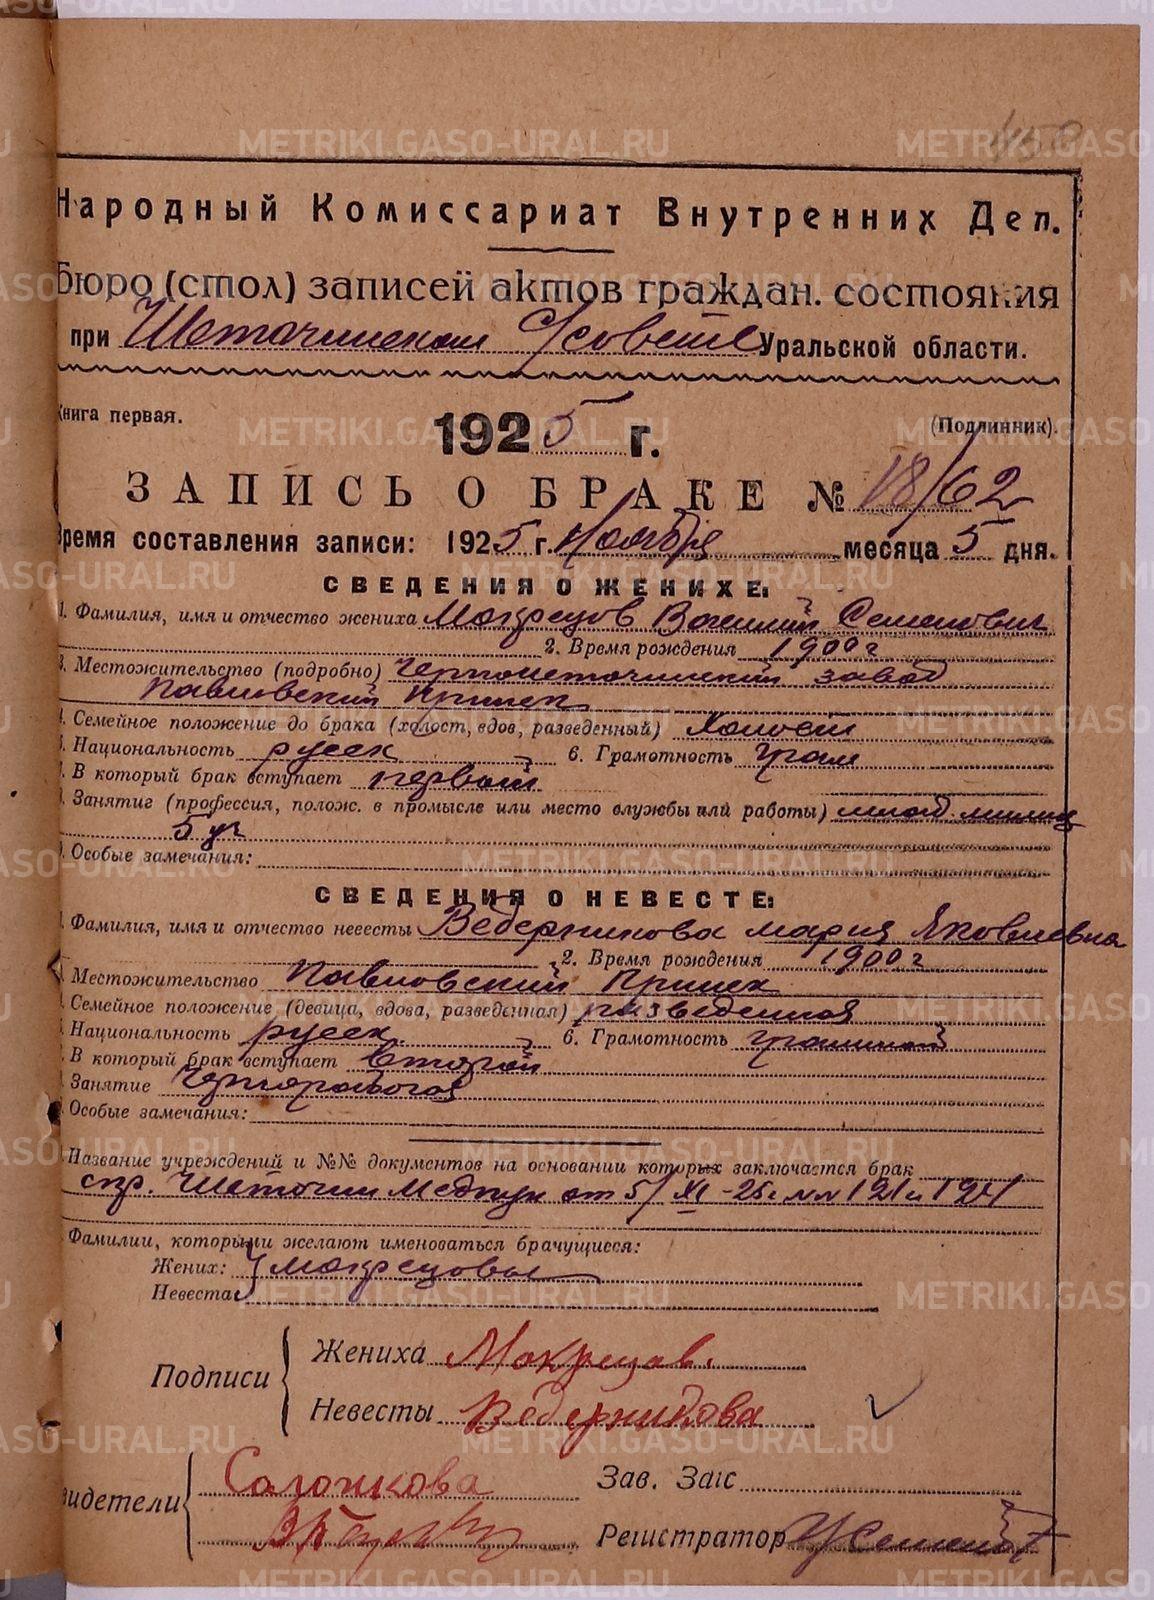 Народный Комиссариат Внутренних Дел.
Бюро (стол) записей актов граждан. состояния
при Уральской области.
Книга первая. 1925 г. (Подлинник).
ЗАПИСЬ О БРАКЕ № 18/62
Время составления записи: 1925 г. Ноября месяца 5 дня.
СВЕДЕНИЯ О ЖЕНИХЕ:
1. Фамилия, имя и отчество жениха Мокрецов Семенович
2. Время рождения 1900 г
3. Местожительство (подробно) Черноисточинский завод
Павловский Прииск
4. Семейное положение до брака (холост, вдов, разведенный) Холост
5. Национальность русск 6. Грамотность Грам
7. В который брак вступает первый
8. Занятие (профессия, полож. в промысле или место службы или работы) млад. милиц
9. Особые замечания:
СВЕДЕНИЯ О НЕВЕСТЕ:
1. Фамилия, имя и отчество невесты Ведерникова Мария Яковлевна
2. Время рождения 1900 г
Местожительство Павловский Прииск
Семейное положение (девица, вдова, разведенная) разведенная
Национальность русск. 6. Грамотность грамотная
В который брак вступает Второй
Занятие Чернорабочая
Особые замечания:
Название учреждений и №№ документов на основании которых заключается брак
спр. от 5/XI-25 г.
Фамилии, которыми желают именоваться брачущиеся:
Жених: Мокрецовы
Невеста
Подписи
Жениха Мокрецов.
Невесты Ведерникова
Свидетели
Зав. Загс
Регистратор
METRIKI.GASO-URAL.RU